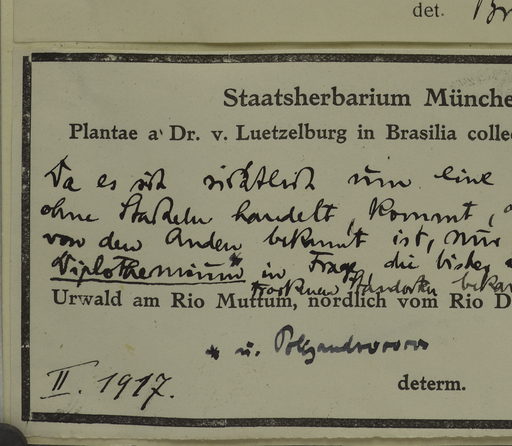 det. Br
Staatsherbarium Münche
Plantae a Dr. v. Luetzelburg in Brasilia colle
Da es sich sichtlich um eine
ohne Stacheln handelt, kommt,
von den Anden bekannt ist, nur
Diplothemium* in Frage die bisher
trockenen Standorten bekan
Urwald am Rio Muttum, nördlich vom Rio D
* u.
II. 1917.
determ.